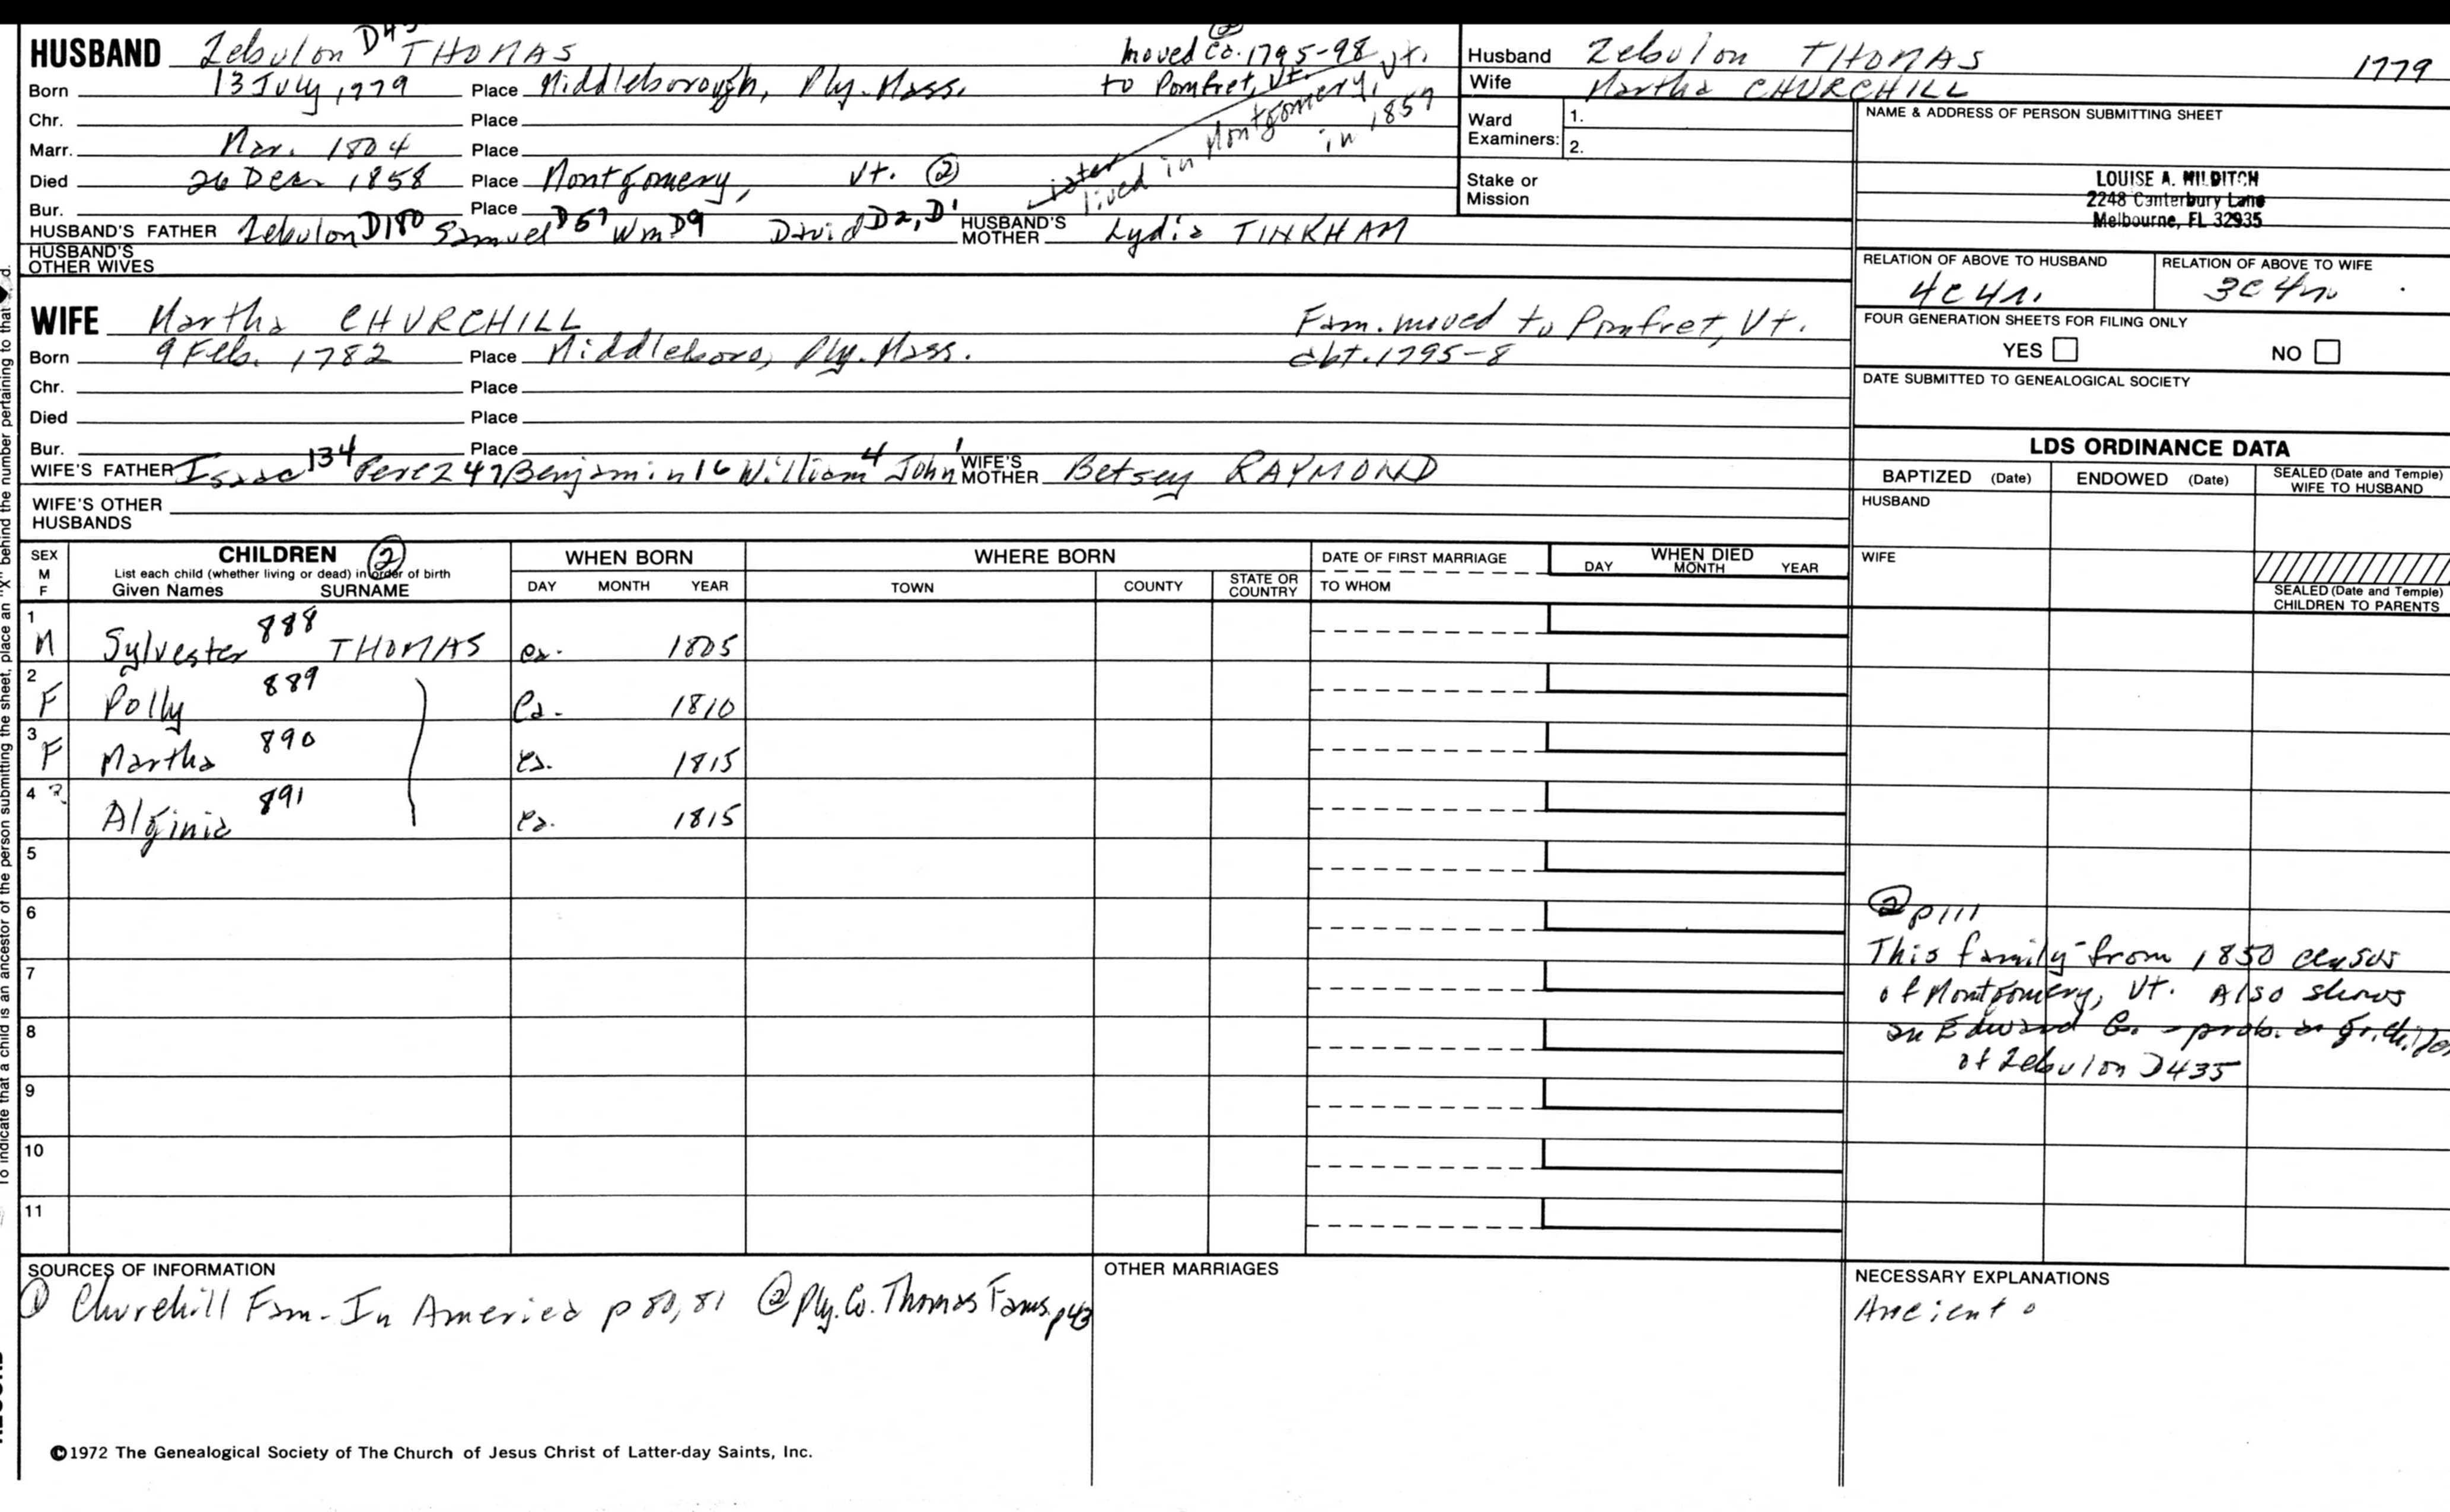 HUSBAND Zebulon THOMAS
moved ca. 1795-98
Born 13 July 1779 Place Middleborough, Ply. Mass. to Pomfret, Vt.
Chr. Place
Marr. Mar. 1804 Place
Died 26 Dec. 1858 Place Montgomery, Vt. ②
lived in Montgomery, Vt. in 1857
Bur. Place
HUSBAND'S FATHER Zebulon D180 Samuel D57 Wm D9 David D2, D1 HUSBAND'S MOTHER Lydia TINKHAM
HUSBAND'S OTHER WIVES
Husband Zebulon THOMAS 1779
Wife Martha CHURCHILL
Ward Examiners: 1.
2.
Stake or Mission
NAME & ADDRESS OF PERSON SUBMITTING SHEET
LOUISE A. WILDITCH
2248 Canterbury Lane
Melbourne, FL 32935
RELATION OF ABOVE TO HUSBAND RELATION OF ABOVE TO WIFE
4c4r. 3c4r.
FOUR GENERATION SHEETS FOR FILING ONLY
YES NO
DATE SUBMITTED TO GENEALOGICAL SOCIETY
WIFE Martha CHURCHILL Fam. moved to Pomfret, Vt.
Born 9 Feb. 1782 Place Middleboro, Ply. Mass. abt. 1795-8
Chr. Place
Died Place
Bur. Place
WIFE'S FATHER Isaac 134 Perez 47 Benjamin 16 William 4 John 1 WIFE'S MOTHER Betsey RAYMOND
WIFE'S OTHER HUSBANDS
LDS ORDINANCE DATA
BAPTIZED (Date) ENDOWED (Date) SEALED (Date and Temple) WIFE TO HUSBAND
HUSBAND
WIFE
SEALED (Date and Temple) CHILDREN TO PARENTS
SEX M F CHILDREN ② WHEN BORN WHERE BORN DATE OF FIRST MARRIAGE WHEN DIED
List each child (whether living or dead) in order of birth
Given Names SURNAME DAY MONTH YEAR TOWN COUNTY STATE OR COUNTRY TO WHOM DAY MONTH YEAR
1 M Sylvester 888 THOMAS ca. 1805
2 F Polly 889 ca. 1810
3 F Martha 890 ca. 1815
4 ? Alginia 891 ca. 1815
5
6
7
8
9
10
11
② p111
This family from 1850 census
of Montgomery, Vt. Also shows
an Edward G. - prob. a gr.child
of Zebulon D435
SOURCES OF INFORMATION
① Churchill Fam. In America p 80, 81 ② Ply. Co. Thomas Fams. p43
OTHER MARRIAGES
NECESSARY EXPLANATIONS
Ancient
©1972 The Genealogical Society of The Church of Jesus Christ of Latter-day Saints, Inc.